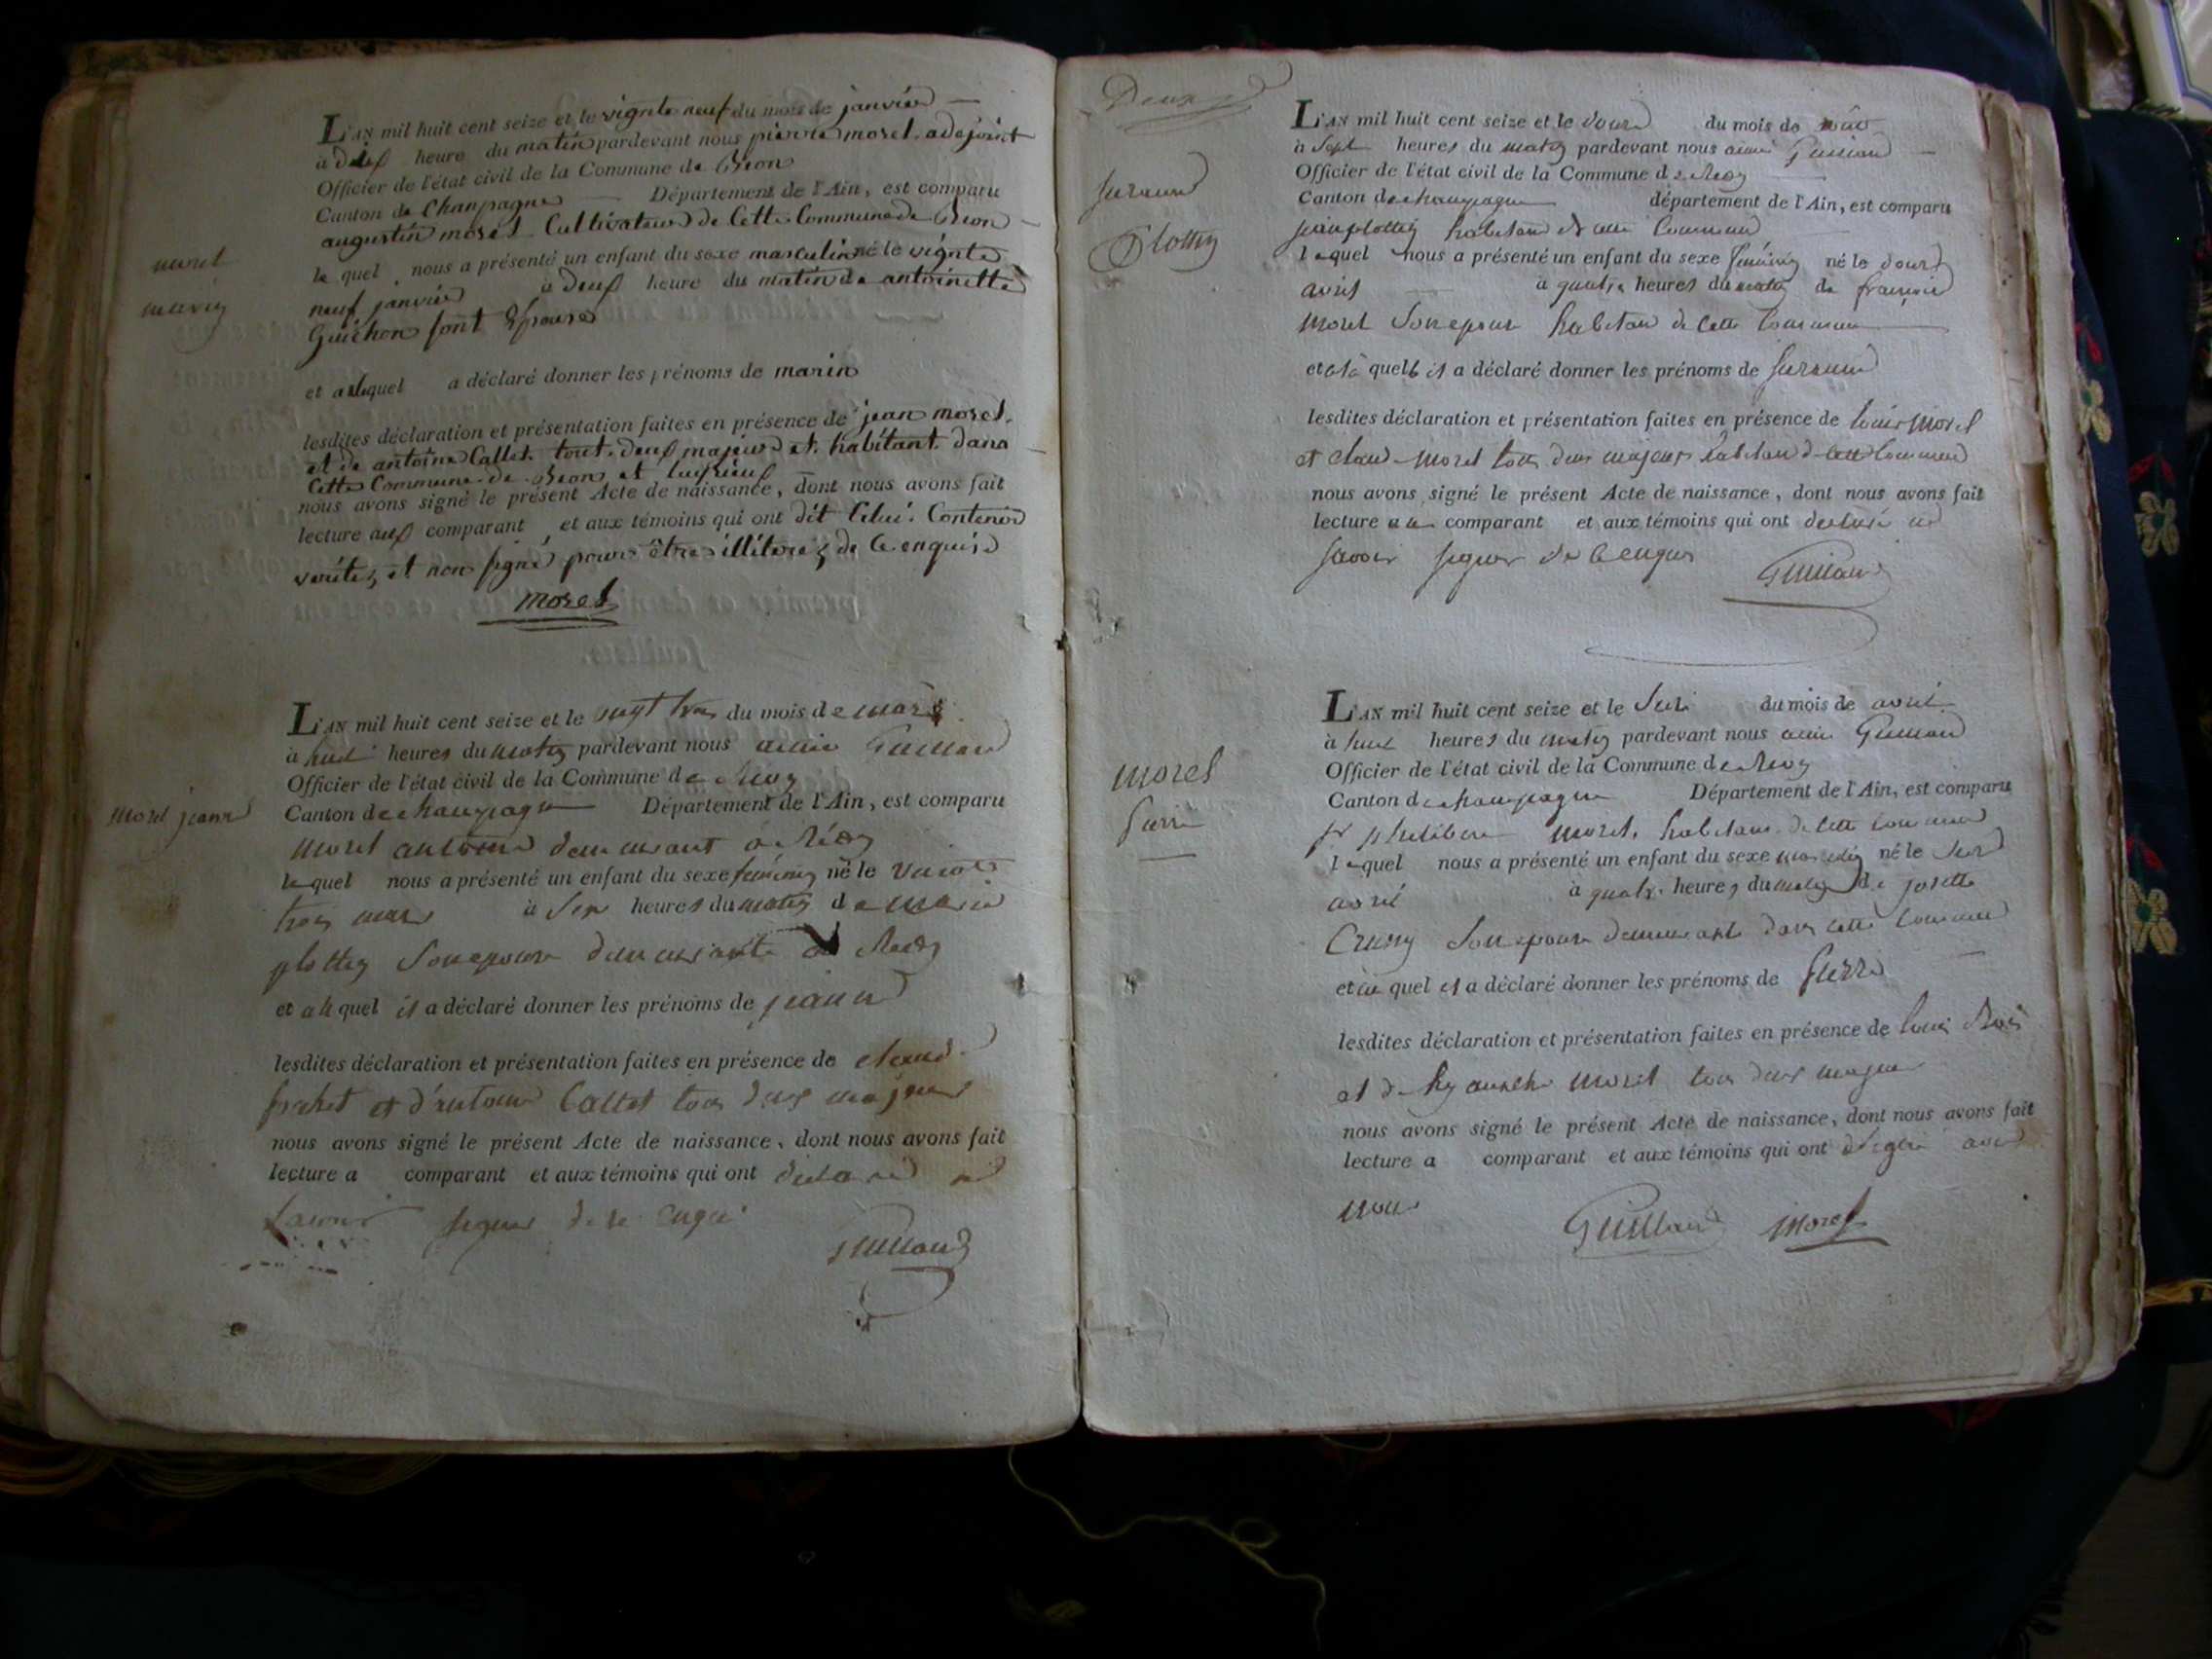 L'AN mil huit cent seize et le vignte neuf du mois de janvier
à deuf heure du matin pardevant nous pierre morel adejoint
Officier de l'état civil de la Commune de Bion
Canton de Champagne Département de l'Ain, est comparu
augustin morel Cultivateur de Cette Commune de Bion
le quel nous a présenté un enfant du sexe masculin né le vignte
neuf janvier à deuf heure du matin de antoinette
Guichon sont Epouse
et auquel a déclaré donner les prénoms de marin
lesdites déclaration et présentation faites en présence de jean morel
et de antoine Callet tout deuf majeur et habitant dans
Cette Commune de Bion et
nous avons signé le présent Acte de naissance, dont nous avons fait
lecture auf comparant, et aux témoins qui ont dit Celui Contenir
vérité, et non signé pour être illiteré de Ce enquis
morel
morel
marin
L'AN mil huit cent seize et le vingt trois du mois de mars
à huit heures du matin pardevant nous Guilland
Officier de l'état civil de la Commune de
Canton de champagne Département de l'Ain, est comparu
morel antoine demeurant à
le quel nous a présenté un enfant du sexe féminin né le
trois mars à heures du matin de marie
plottin Son epouse demeurante à
et a quel il a déclaré donner les prénoms de jeanne
lesdites déclaration et présentation faites en présence de claude
et d'antoine Callet tous deux majeurs
nous avons signé le présent Acte de naissance, dont nous avons fait
lecture a comparant et aux témoins qui ont déclaré ne
savoir signer de ce enquis
Guilland
Morel jeanne
Deux
Plottin
L'AN mil huit cent seize et le douze du mois de
à Sept heures du matin pardevant nous Guilland
Officier de l'état civil de la Commune de
Canton de champagne département de l'Ain, est comparu
jean plottin habitant de cette Commune
lequel nous a présenté un enfant du sexe féminin né le douze
avril à quatre heures du matin de françoise
Morel Son epouse habitant de cette Commune
et à la quelle il a déclaré donner les prénoms de
lesdites déclaration et présentation faites en présence de louis Morel
et claude Morel tous deux majeurs habitant de cette Commune
nous avons signé le présent Acte de naissance, dont nous avons fait
lecture au comparant et aux témoins qui ont declaré ne
savoir signer de ce enquis
Guilland
L'AN mil huit cent seize et le du mois de avril
à huit heures du matin pardevant nous Guilland
Officier de l'état civil de la Commune de
Canton de champagne Département de l'Ain, est comparu
philibert morel, habitant de cette commune
lequel nous a présenté un enfant du sexe masculin né le
avril à quatre heures du matin de josette
Son epouse demeurante dans cette commune
et au quel il a déclaré donner les prénoms de pierre
lesdites déclaration et présentation faites en présence de louis
et de morel tous deux majeur
nous avons signé le présent Acte de naissance, dont nous avons fait
lecture a comparant et aux témoins qui ont signé avec
nous
Guilland morel
Morel
pierre